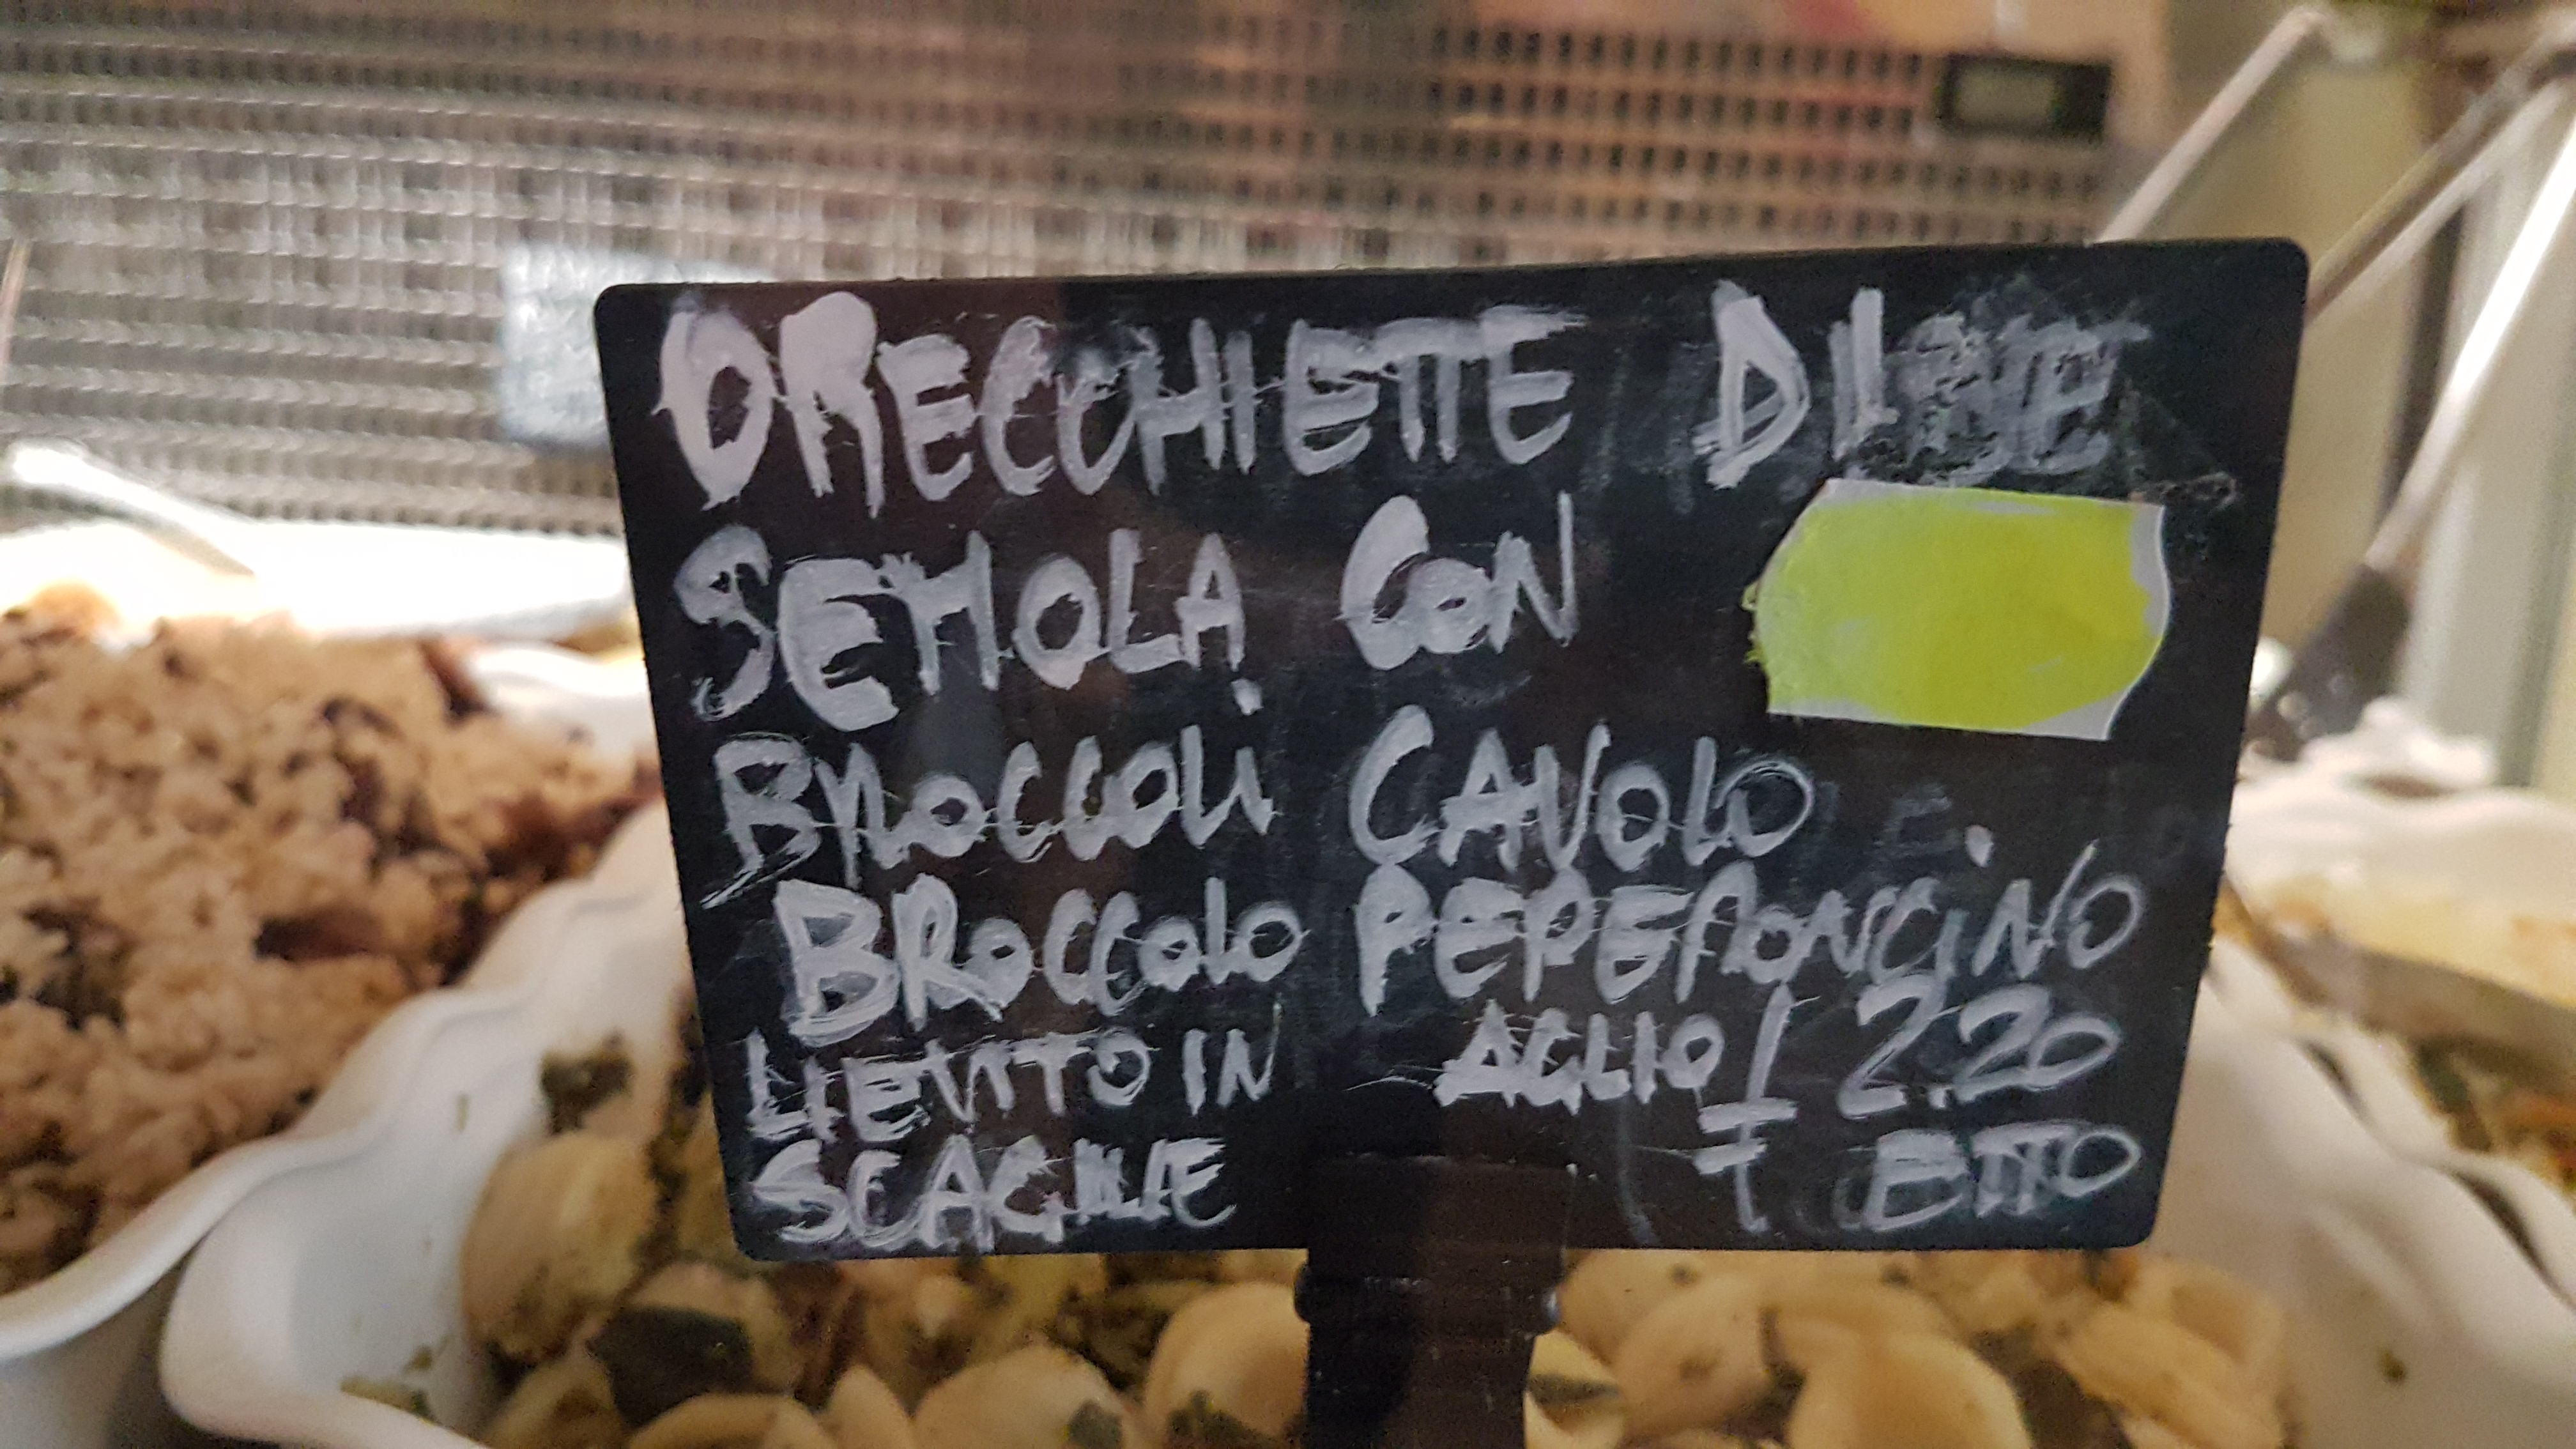 ORECCHIETTE DI
SEMOLA CON
BROCCOLI CAVOLO
BROCCOLO PEPERONCINO
LIEVITO IN AGLIO 2.20
SCAGLIE ETTO